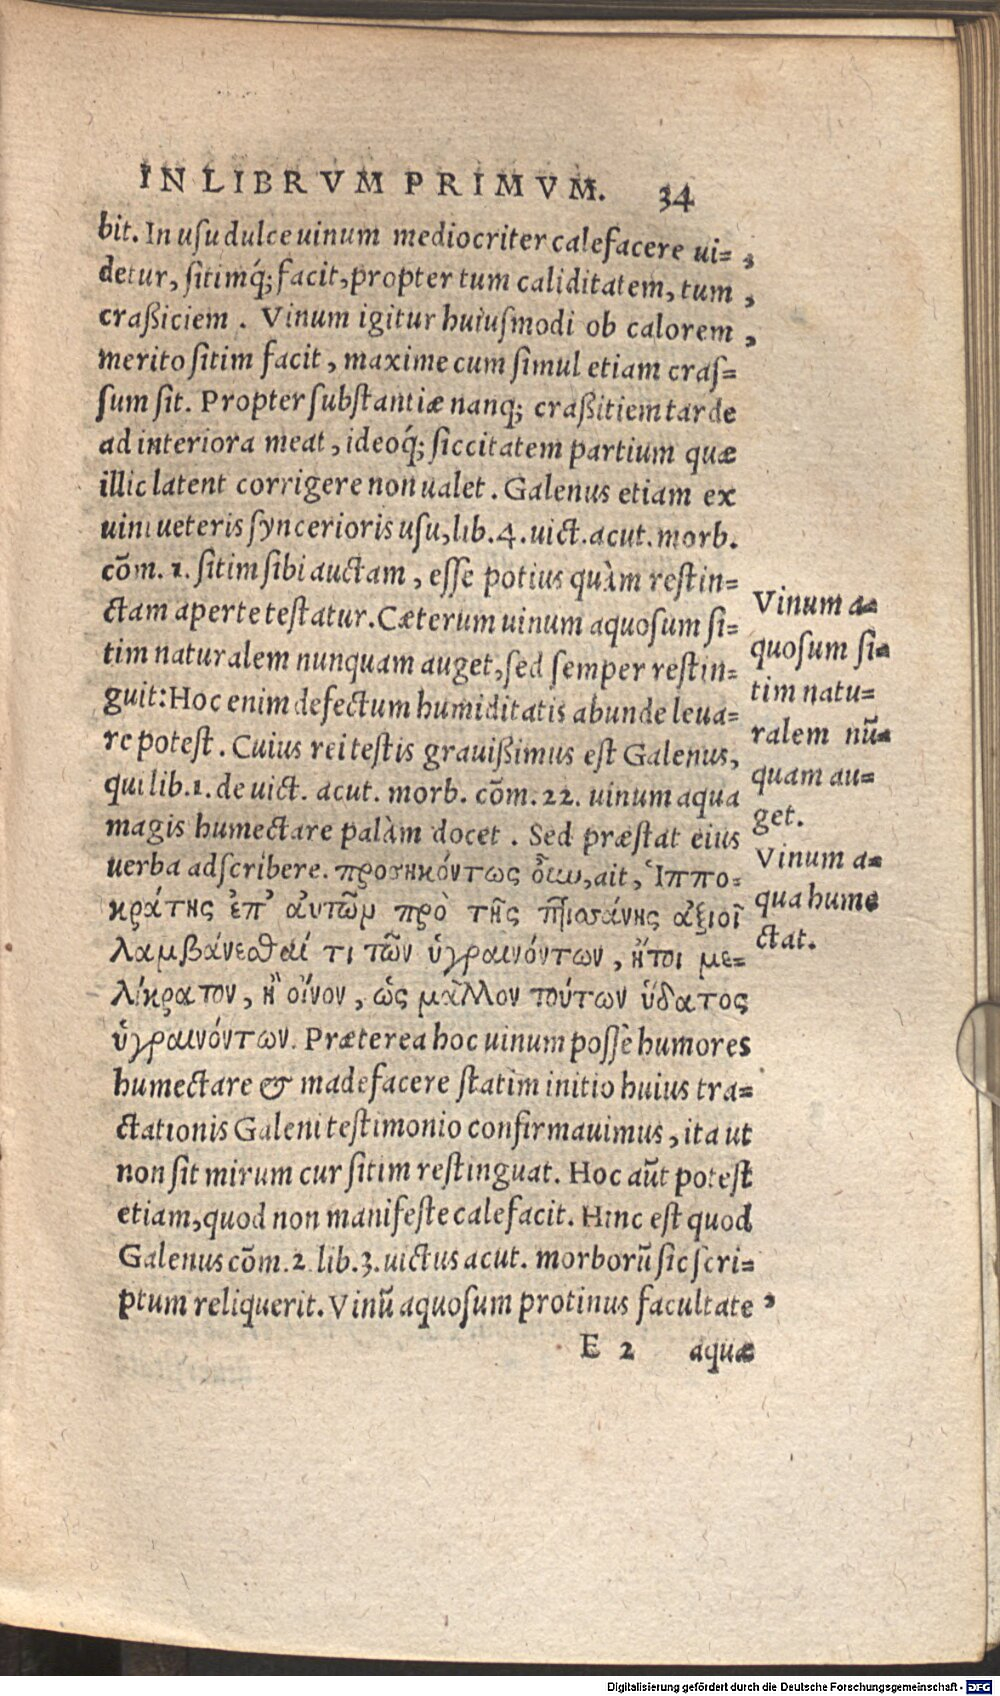 IN LIBRVM PRIMVM. 34
bit. In uſu dulce uinum mediocriter calefacere ui= ,
detur, ſitimq́; facit, propter tum caliditatem, tum ,
craßiciem . Vinum igitur huiuſmodi ob calorem ,
merito ſitim facit, maxime cum ſimul etiam craſ=
ſum ſit. Propter ſubſtantiæ nanq; craßitiem tarde
ad interiora meat, ideoq́; ſiccitatem partium quæ
illic latent corrigere non ualet. Galenus etiam ex
uini ueteris ſyncerioris uſu, lib. 4. uict. acut. morb.
cõm. 1. ſitim ſibi auctam, eſſe potius quàm reſtin=
ctam aperte teſtatur. Cæterum uinum aquoſum ſi=
tim naturalem nunquam auget, ſed ſemper reſtin=
guit: Hoc enim defectum humiditatis abunde leua=
re poteſt. Cuius rei teſtis grauißimus eſt Galenus,
qui lib. 1. de uict. acut. morb. cõm. 22. uinum aqua
magis humectare palàm docet. Sed præſtat eius
uerba adſcribere. προσηκόντως οὖν, ait, Ἱππο=
κράτης ἐπ' αὐτῶν πρὸ τῆς πτισάνης ἀξιοῖ
λαμβάνεσθαί τι τῶν ὑγραινόντων, ἤτοι με=
λίκρατον, ἢ οἴνον, ὡς μᾶλλον τούτων ὕδατος
ὑγραινόντων. Præterea hoc uinum poſſe humores
humectare & madefacere ſtatim initio huius tra=
ctationis Galeni teſtimonio confirmauimus, ita ut
non ſit mirum cur ſitim reſtinguat. Hoc aũt poteſt
etiam, quod non manifeſte calefacit. Hinc eſt quod
Galenus cõm. 2 lib. 3. uictus acut. morborũ ſic ſcri=
ptum reliquerit. Vinũ aquoſum protinus facultate ,
E 2 aquæ
Vinum a=
quoſum ſi=
tim natu=
ralem nũ=
quam au=
get.
Vinum a=
qua hume
ctat.
Digitalisierung gefördert durch die Deutsche Forschungsgemeinschaft - DFG